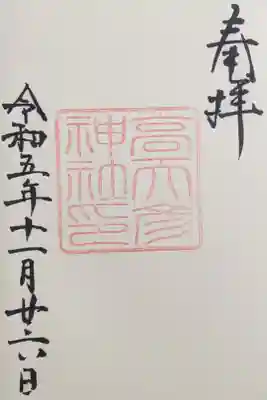 奉拝
高天彦
神社印
令和五年十一月廿六日